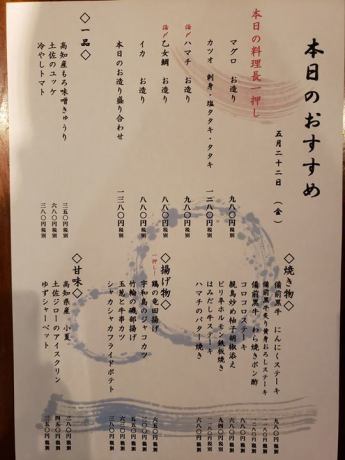 本日のおすすめ
五月二十二日 （金）
本日の料理長一押し
マグロ お造り 九八〇円税別
カツオ 刺身・塩タタキ・タタキ 一二八〇円税別
ハマチ お造り 九八〇円税別
乙女鯛 お造り 八八〇円税別
イカ お造り 八八〇円税別
本日のお造り盛り合わせ 一三八〇円税別
◇一品◇
高知産もろ味噌きゅうり 三五〇円税別
土佐のユッケ 六八〇円税別
冷やしトマト 三八〇円税別
◇焼き物◇
備前黒牛 にんにくステーキ
備前黒牛炙り黄身おろしステーキ
備前黒牛 わら焼きポン酢
コロコロステーキ
親鳥炒め柚子胡椒添え
ピリ辛ホルモン鉄板焼き
はみだし牛ステーキ
ハマチのバター焼き
◇揚げ物◇
鶏の竜田揚げ
宇和島のジャコカツ
竹輪の磯部揚げ
玉葱と牛串カツ
シャカシャカフライドポテト
◇甘味◇
高知県産 小夏
土佐ジローのアイスクリン
ゆずシャーベット